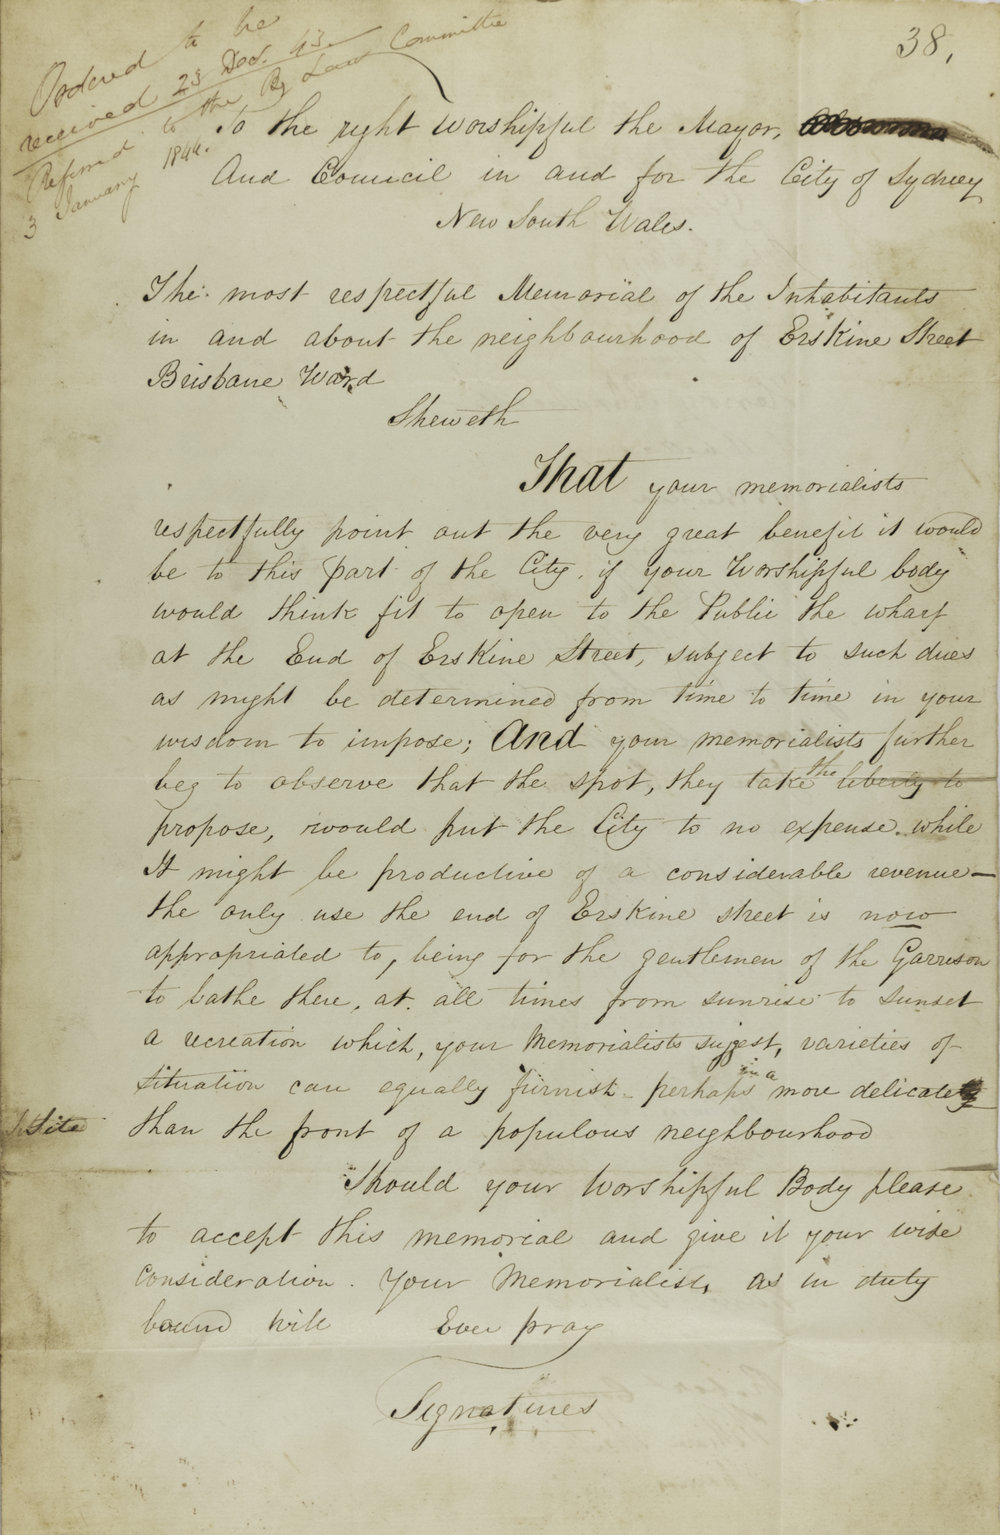 38.
Ordered to be
received 23 Dec. 43.
Referred to the By Law Committee
3 January 1844.
To the right Worshipful the Mayor,
And Council in and for the City of Sydney
New South Wales.
The most respectful Memorial of the Inhabitants
in and about the neighbourhood of Erskine Street
Brisbane Ward
Sheweth
That your memorialists
respectfully point out the very great benefit it would
be to this part of the City. if your Worshipful body
would think fit to open to the Public the wharf
at the End of Erskine Street, subject to such dues
as might be determined from time to time in your
wisdom to impose; And your memorialists further
beg to observe that the spot, they take the liberty to
propose, would put the City to no expense while
It might be productive of a considerable revenue—
the only use the end of Erskine street is now
appropriated to, being for the gentlemen of the Garrison
to bathe there, at all times from sunrise to sunset
a recreation which, your Memorialists sugest, varieties of
situation can equally furnish - perhaps in a more delicate
Site than the front of a populous neighbourhood
Should your Worshipful Body please
to accept this memorial and give it your wise
consideration. Your Memorialists, as in duty
bound will Ever pray
Signatures